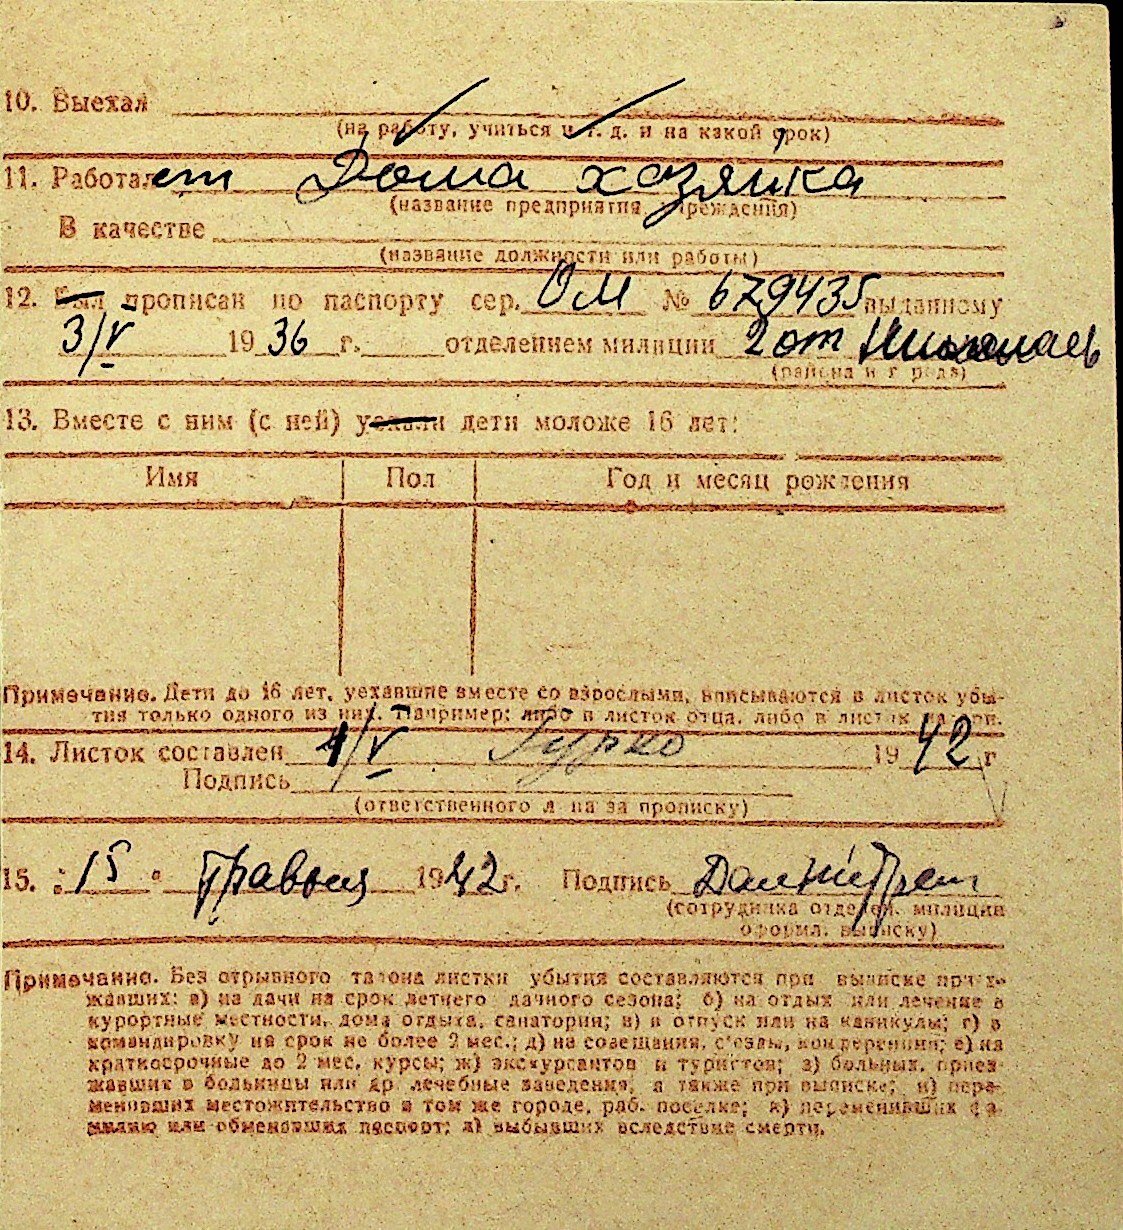 10. Выехал
(на работу, учиться и т. д. и на какой срок)
11. Работает Дома хозяйка
(название предприятия, учреждения)
В качестве
(название должности или работы)
12. Был прописан по паспорту сер. ОМ № 679435 выданному
3/V 1936 г. отделением милиции 2 от Николаев
(района и города)
13. Вместе с ним (с ней) уехали дети моложе 16 лет:
Имя Пол Год и месяц рождения
Примечание. Дети до 16 лет, уехавшие вместе со взрослыми, вписываются в листок убы-
тия только одного из них. Например: либо в листок отца, либо в листок матери.
14. Листок составлен 1/V Гурко 1942 г
Подпись
(ответственного лица за прописку)
15. "15" Травня 1942 г. Подпись
(сотрудника отделен. милиции
оформл. выписку)
Примечание. Без отрывного талона листки убытия составляются при выписке приез-
жавших: а) на дачи на срок летнего дачного сезона; б) на отдых или лечение в
курортные местности, дома отдыха, санатории; в) в отпуск или на каникулы; г) в
командировку на срок не более 2 мес.; д) на совещания, с'езды, конференции; е) на
краткосрочные до 2 мес. курсы; ж) экскурсантов и туристов; з) больных, приез-
жавших в больницы или др. лечебные заведения, а также при выписке; и) пере-
менивших местожительство в том же городе, раб. поселке; к) переменивших фа-
милию или обменявших паспорт; л) выбывших вследствие смерти.